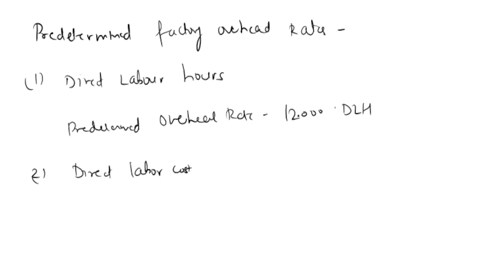 Predetermined factory overhead Rate -
(1) Direct Labour hours
Predetermined Overhead Rate - 12000 · DLH
2) Direct labor cost